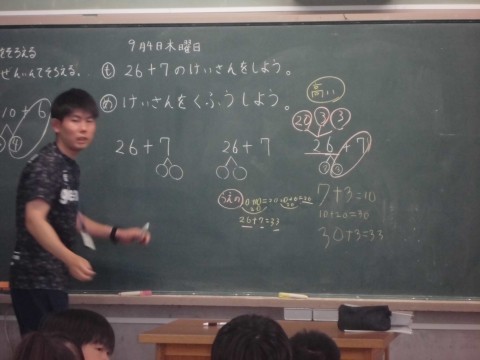 をそろえる
9月4日木曜日
ぜんいんでそろえる。
も 26+7のけいさんをしよう。
め けいさんをくふうしよう。
10+6
④
26+7
26+7
20 3 3
26+7
7+3=10
10+20=30
30+3=33
26+7=33